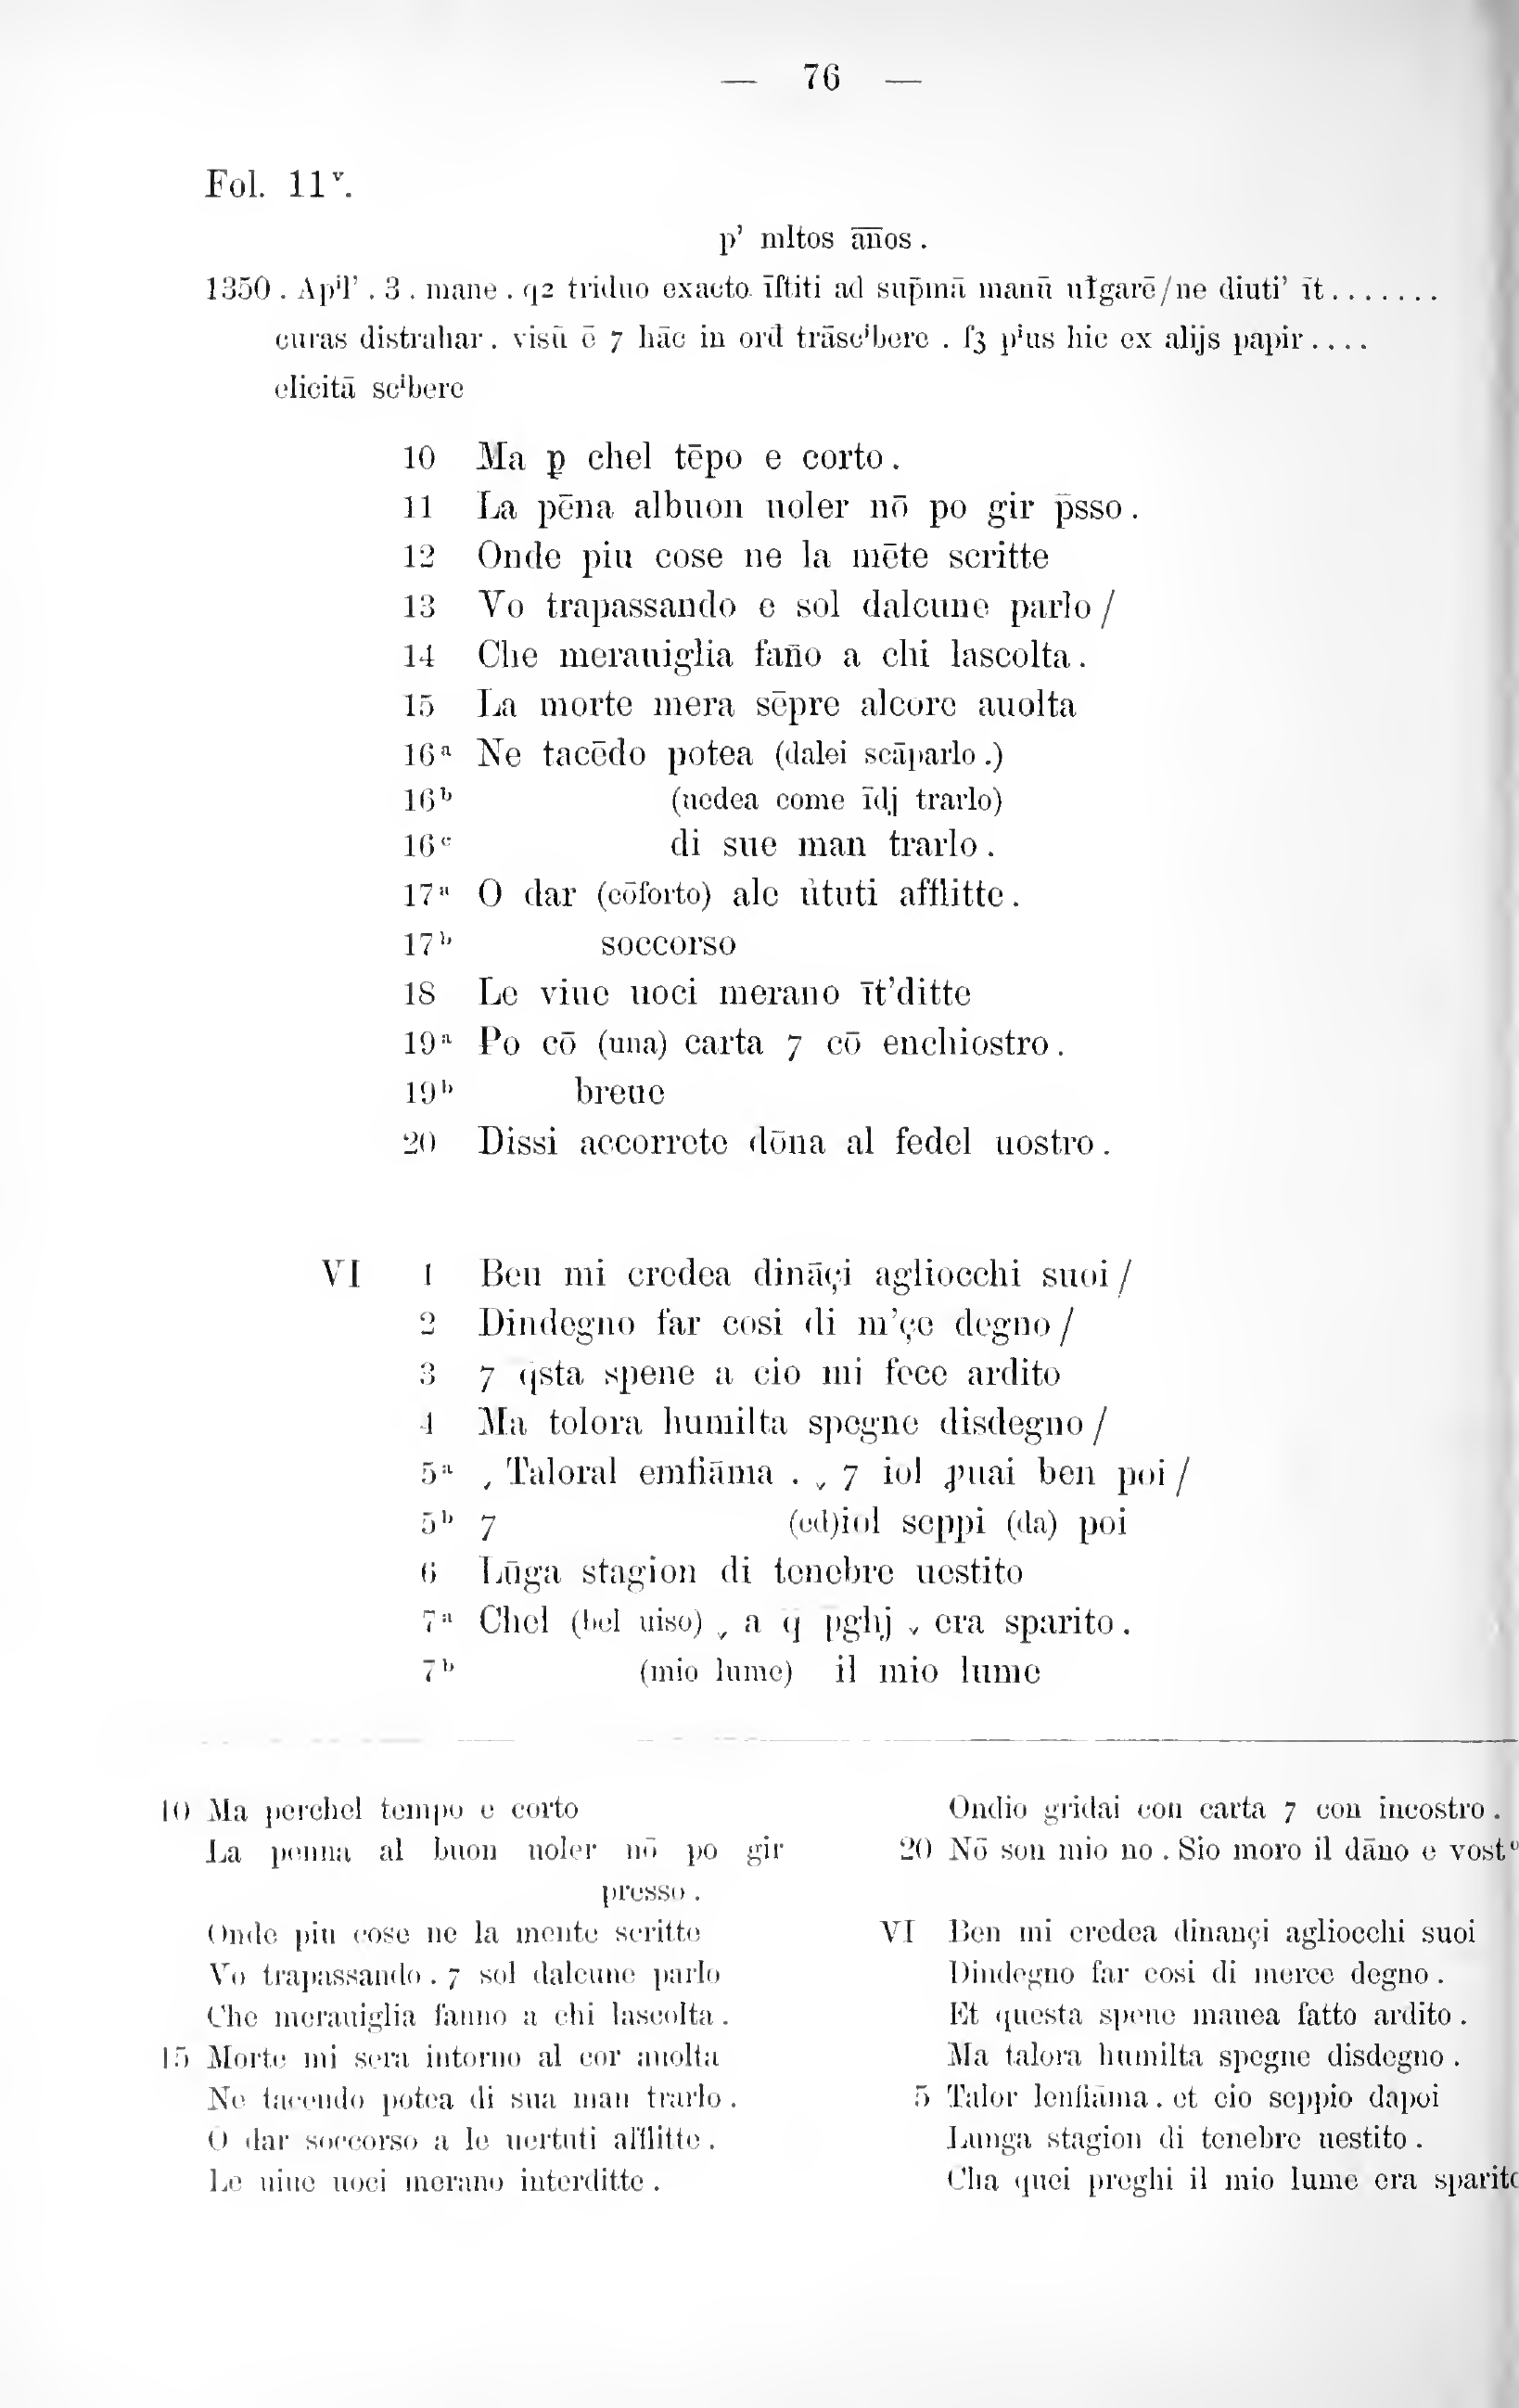 — 76 —
Fol. 11ᵛ.
p’ mltos āños .
1350 . Apⁱl’ . 3 . mane . q2 triduo exacto īſtiti ad sup̄mā manū ulgarē/ne diuti’ īt.......
curas distrahar . visū ē 7 hāc in ord trāscⁱbere . ſ3 pⁱus hic ex alijs papir....
elicitā scⁱbere
10 Ma ꝑ chel tēpo e corto .
11 La pēna albuon uoler nō po gir p̄sso .
12 Onde piu cose ne la mēte scritte
13 Vo trapassando e sol dalcune parlo /
14 Che merauiglia faño a chi lascolta .
15 La morte mera sēpre alcore auolta
16ᵃ Ne tacēdo potea (dalei scāparlo .)
16ᵇ (uedea come īdj trarlo)
16ᶜ di sue man trarlo .
17ᵃ O dar (cōforto) ale u̓tuti afflitte .
17ᵇ soccorso
18 Le viue uoci merano īt’ditte
19ᵃ Po cō (una) carta 7 cō enchiostro .
19ᵇ breue
20 Dissi accorrete dōna al fedel uostro .
VI 1 Ben mi credea dināçi agliocchi suoi /
2 Dindegno far cosi di m’çe degno /
3 7 q̄sta spene a cio mi fece ardito
4 Ma tolora humilta spegne disdegno /
5ᵃ ‚ Taloral emfiāma . ᵥ 7 iol ꝓuai ben poi /
5ᵇ 7 (ed)iol seppi (da) poi
6 Lūga stagion di tenebre uestito
7ᵃ Chel (bel uiso) ᵥ a q̄ p̄ghj ᵥ era sparito .
7ᵇ (mio lume) il mio lume
10 Ma perchel tempo e corto
La penna al buon uoler nō po gir
presso .
Onde piu cose ne la mente scritte
Vo trapassando . 7 sol dalcune parlo
Che merauiglia fanno a chi lascolta .
15 Morte mi sera intorno al cor auolta
Ne tacendo potea di sua man trarlo .
O dar soccorso a le uertuti afflitte .
Le uiue uoci merano interditte .
Ondio gridai con carta 7 con incostro .
20 Nō son mio no . Sio moro il dāno e vostᵒ
VI Ben mi credea dinançi agliocchi suoi
Dindegno far cosi di merce degno .
Et questa spene manea fatto ardito .
Ma talora humilta spegne disdegno .
5 Talor lenfiāma . et cio seppio dapoi
Lunga stagion di tenebre uestito .
Cha quei preghi il mio lume era sparito